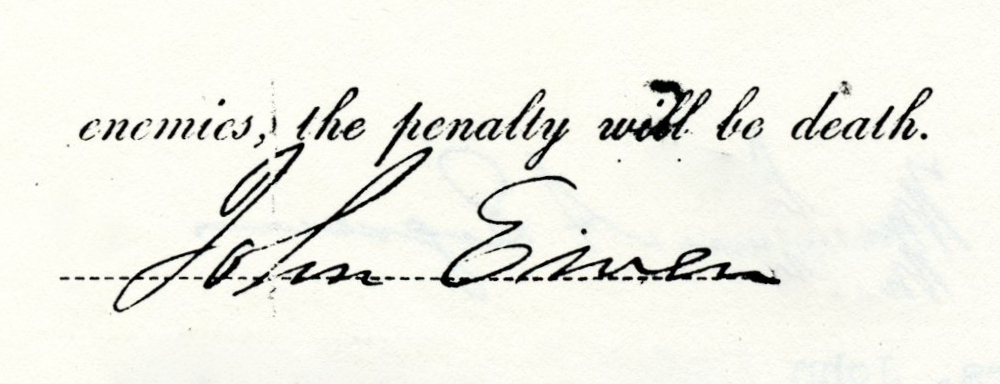 enemies, the penalty will be death.
John Ewen